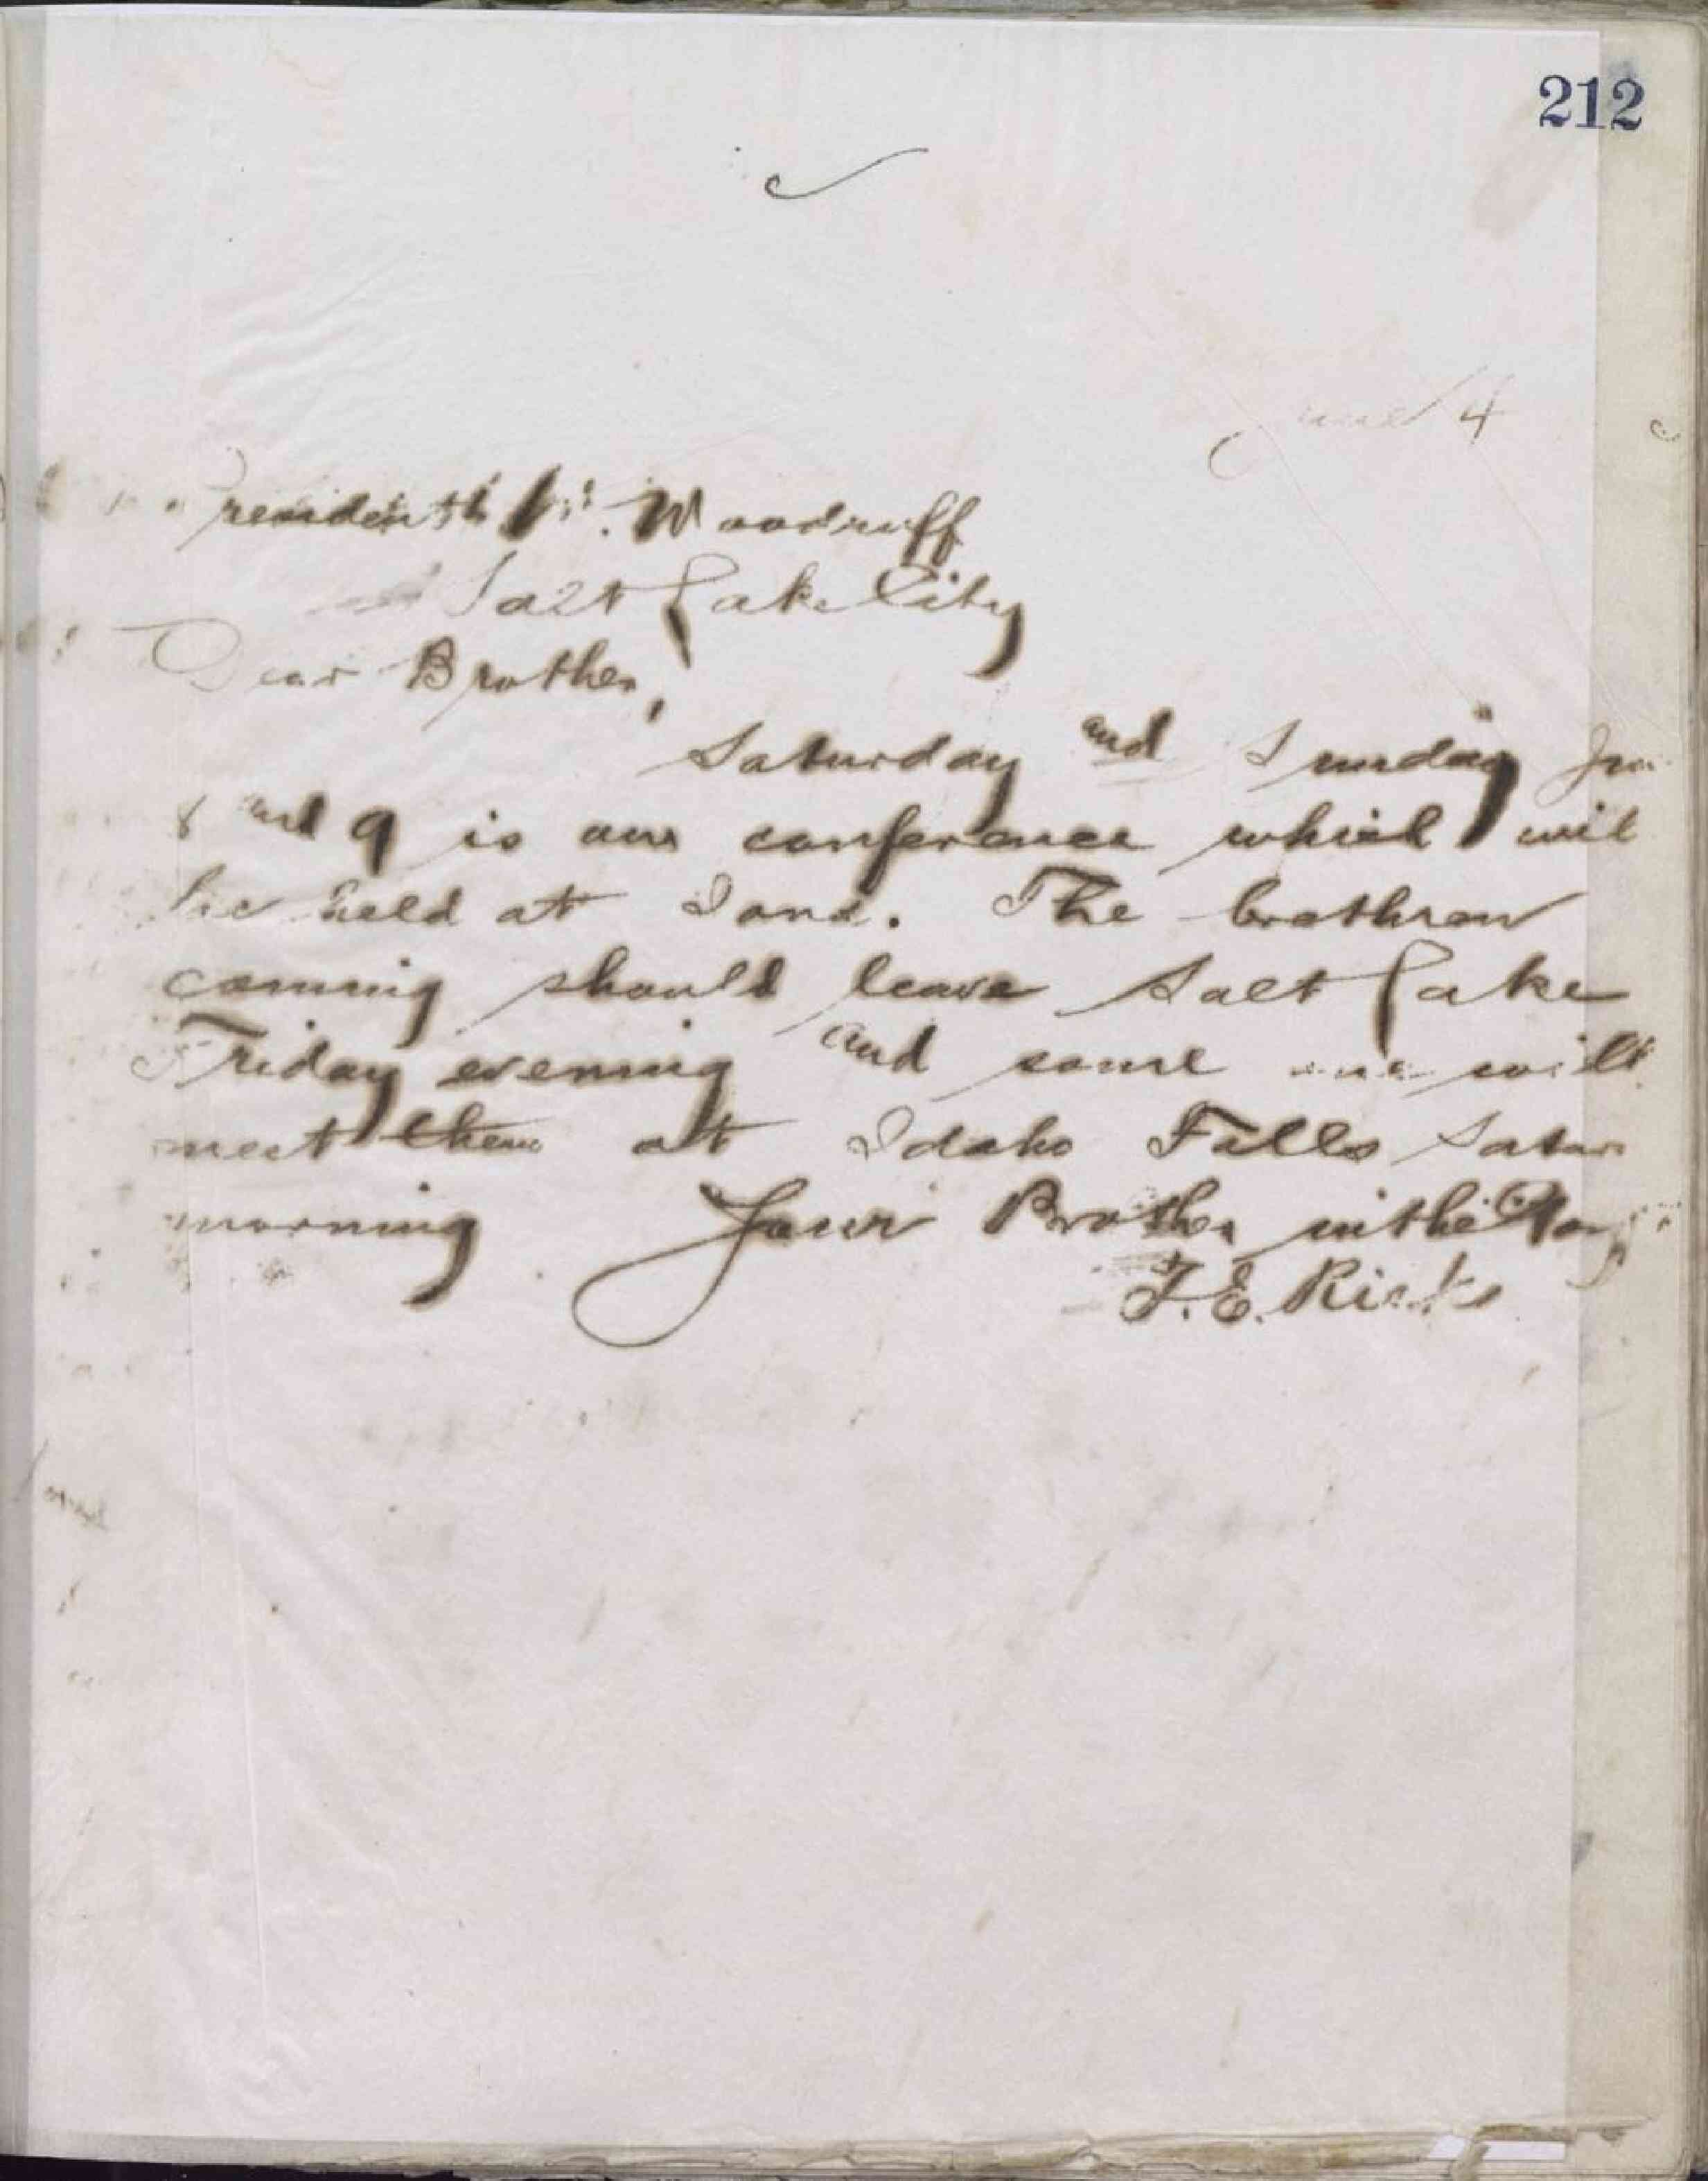 212
June 4
President W. Woodruff
Salt Lake City
Dear Brother,
Saturday and Sunday Jun
8 and 9 is our conference which will
be held at Iona. The brethren
coming should leave Salt Lake
Friday evening and some one will
meet them at Idaho Falls Satur
morning Your Brother in the
T. E. Ricks